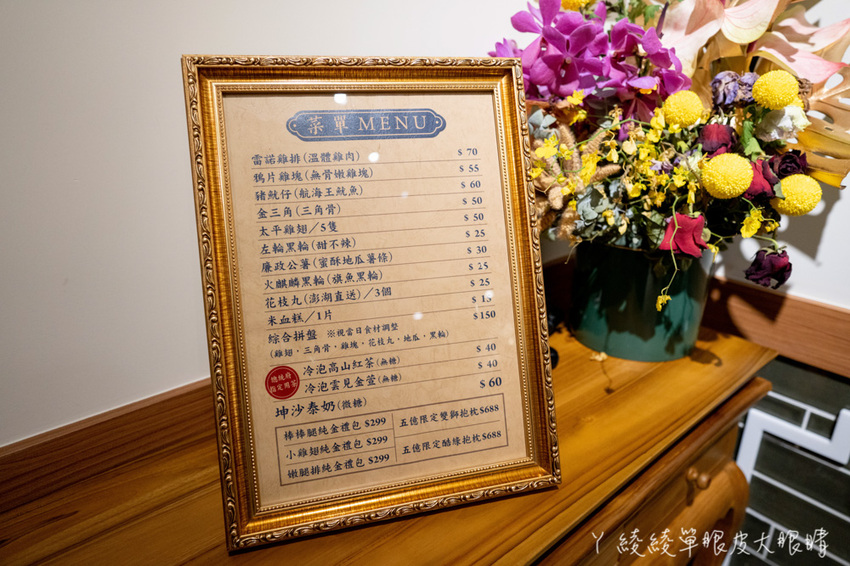 菜單 MENU
雷諾雞排(溫體雞肉) $ 70
鴉片雞塊(無骨嫩雞塊) $ 55
豬魷仔(航海王魷魚) $ 60
金三角(三角骨) $ 50
太平雞翅／5隻 $ 50
左輪黑輪(甜不辣) $ 25
廉政公薯(蜜酥地瓜薯條) $ 30
火麒麟黑輪(旗魚黑輪) $ 25
花枝丸(澎湖直送)／3個 $ 25
米血糕／1片 $ 15
綜合拼盤 ※視當日食材調整 $150
(雞翅．三角骨．雞塊．花枝丸．地瓜．黑輪)
總統府
指定用茶
冷泡高山紅茶(無糖) $ 40
冷泡雲見金萱(無糖) $ 40
坤沙泰奶(微糖) $ 60
棒棒腿純金禮包 $299
小雞翅純金禮包 $299
嫩腿排純金禮包 $299
五億限定雙獅抱枕$688
五億限定酷緣抱枕$688
ㄚ綾綾單眼皮大眼睛